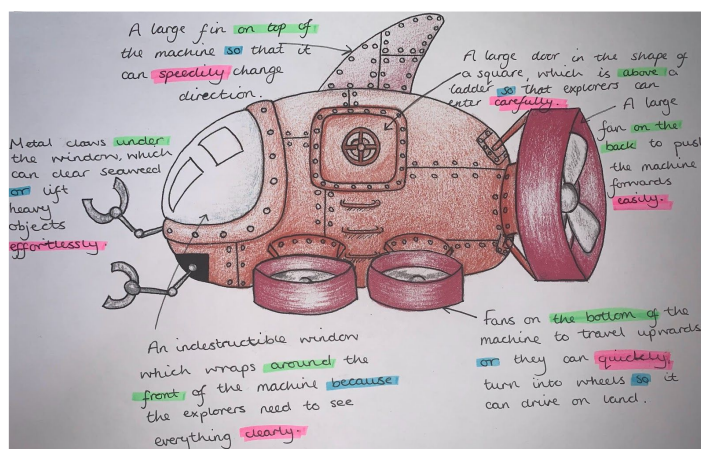 A large fin on top of
the machine so that it
can speedily change
direction.
A large door in the shape of
a square, which is above a
ladder so that explorers can
enter carefully.
A large
fan on the
back to push
the machine
forwards
easily.
Metal claws under
the window, which
can clear seaweed
or lift
heavy
objects
effortlessly.
An indestructible window
which wraps around the
front of the machine because
the explorers need to see
everything clearly.
Fans on the bottom of the
machine to travel upwards
or they can quickly
turn into wheels so it
can drive on land.